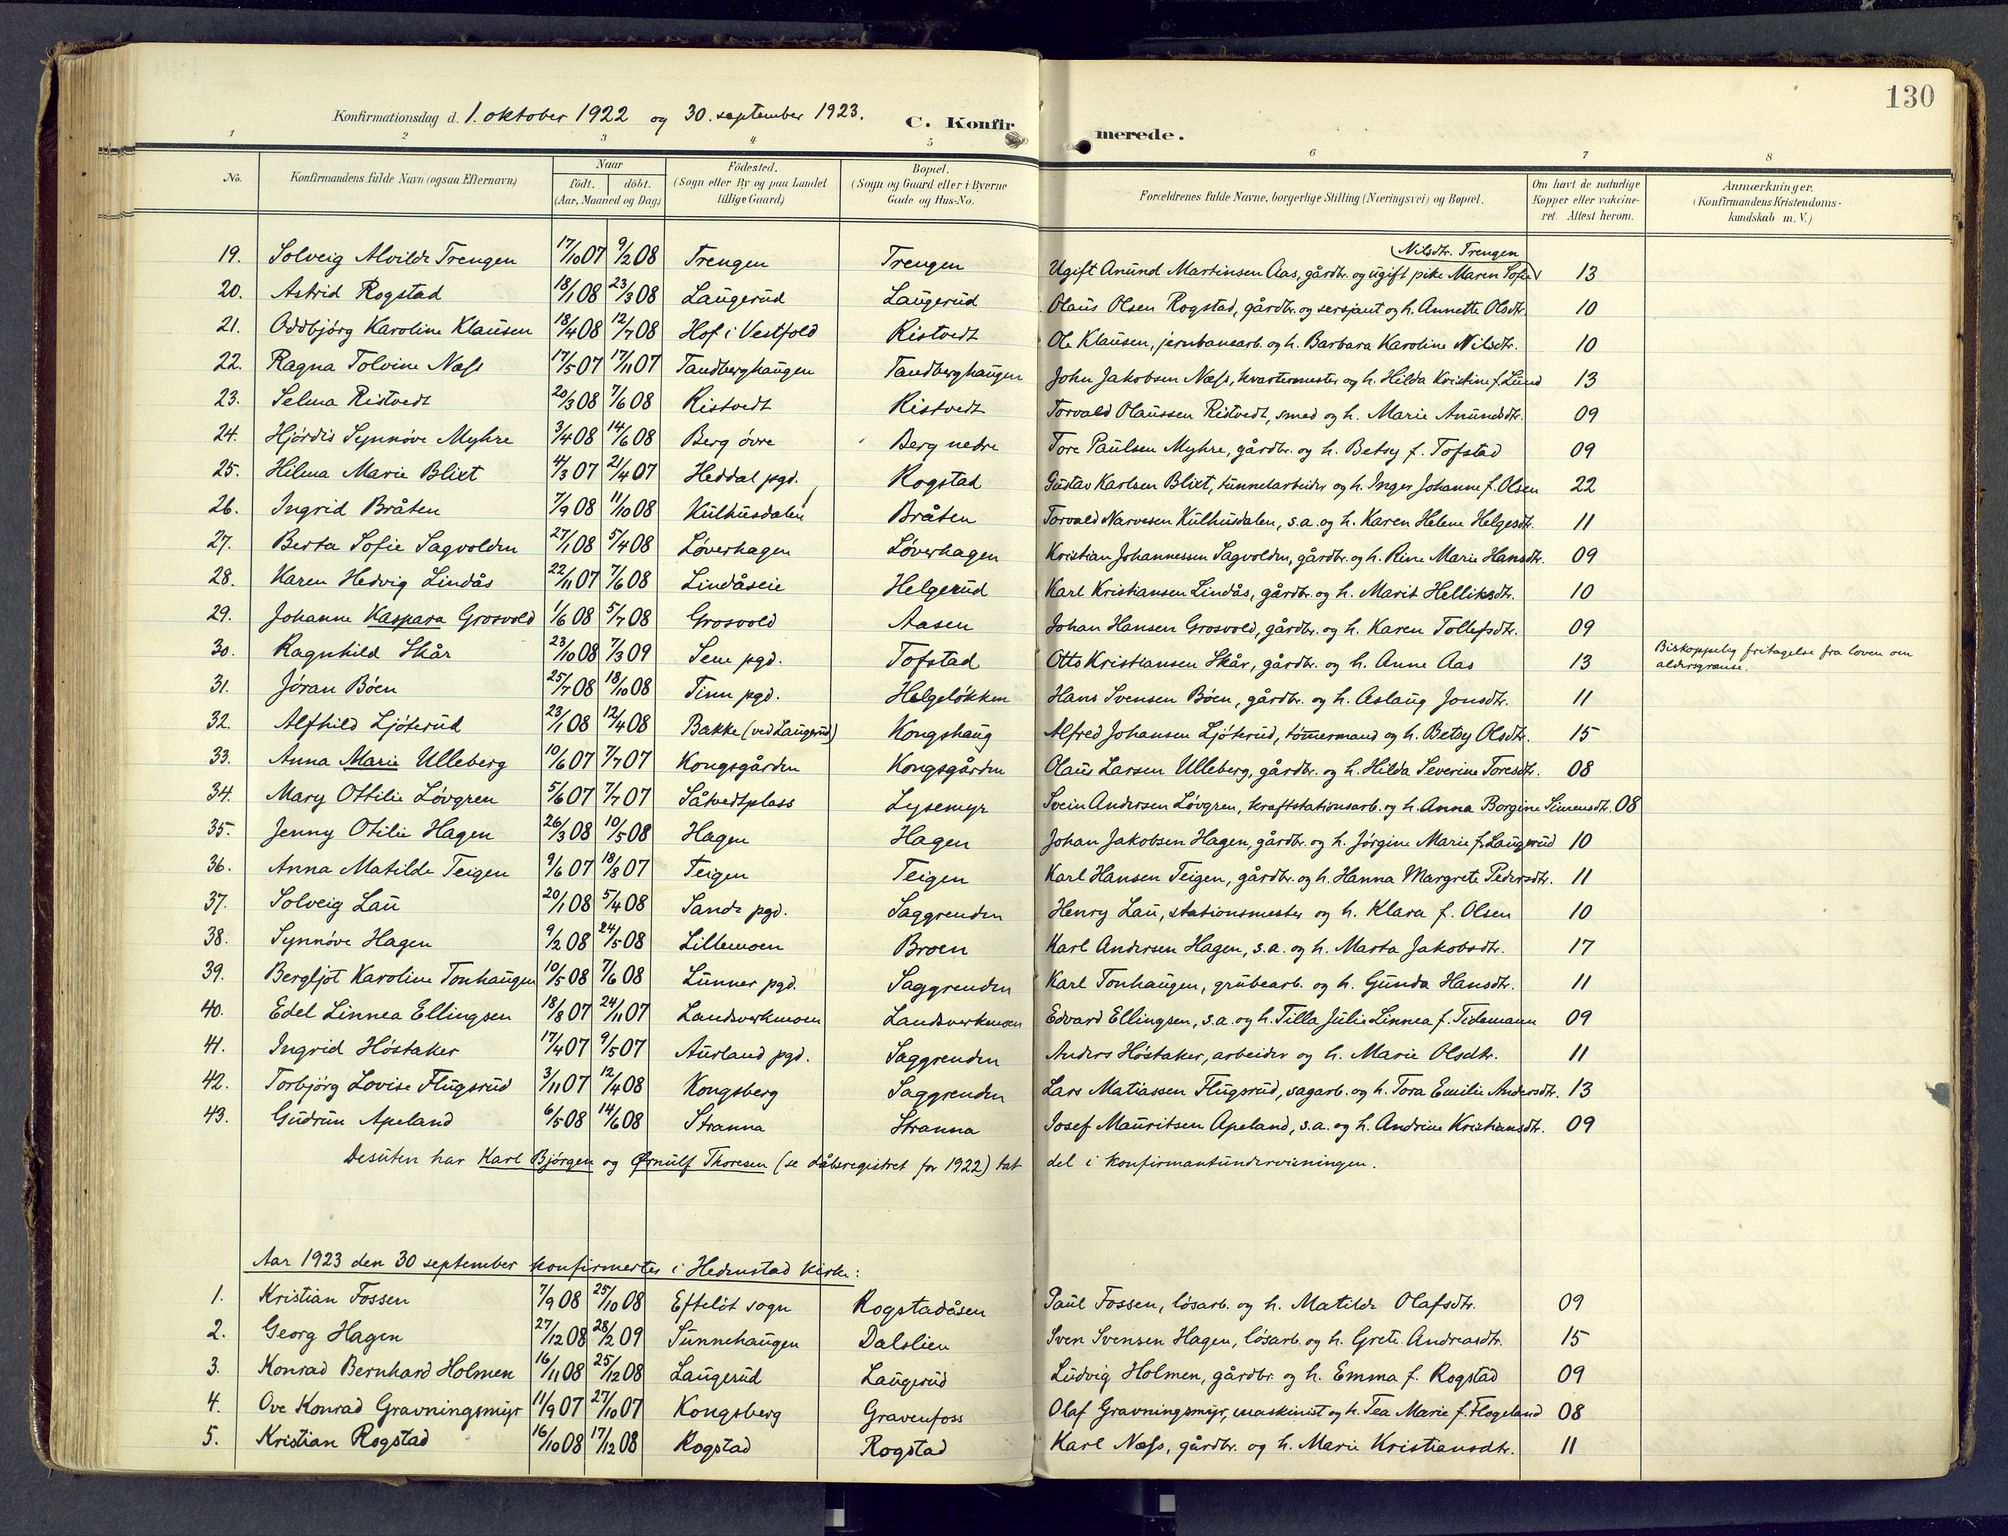 130
Konfirmationsdag d. 1. oktober 1922 og 30. september 1923. C. Konfirmerede.
1 2 3 4 5 6 7 8
No. Konfirmandens fulde Navn (ogsaa Efternavn) Naar födt. döbt. (Aar, Maaned og Dag) Födested. (Sogn eller By og paa Landet tillige Gaard) Bopæl. (Sogn og Gaard eller i Byerne Gade og Hus-No. Forældrenes fulde Navne, borgerlige Stilling (Næringsvei) og Bopæl. Om havt de naturlige Kopper eller vaccineret. Attest herom. Anmærkninger. (Konfirmandens Kristendomskundskab m. V.)
Nilsdtr. Trengen
19. Solveig Alvilde Trengen 17/10 07 9/2 08 Trengen Trengen Ugift Anund Martinsen Aas, gårdbr. og ugift pike Maren Sofie 13
20. Astrid Rogstad 18/1 08 23/3 08 Laugerud Laugerud Olaus Olsen Rogstad, gårdbr. og sersjant og h. Annette Olsdtr. 10
21. Oddbjørg Karoline Klausen 18/4 08 12/7 08 Hof i Vestfold Ristvedt Ole Klausen, jernbanearb. og h. Barbara Karoline Nilsdtr. 10
22. Ragna Tolvine Næss 17/5 07 17/11 07 Tandberghaugen Tandberghaugen John Jakobsen Næss, kvartermester og h. Hilda Kristine f. Lund 13
23. Selma Ristvedt 20/3 08 7/6 08 Ristvedt Ristvedt Torvald Olaussen Ristvedt, smed og h. Marie Anundsdtr. 09
24. Hjørdis Synnøve Myhre 3/4 08 14/6 08 Berg övre Berg nedre Tore Paulsen Myhre, gårdbr. og h. Betsy f. Tofstad 09
25. Hilma Marie Blixt 4/3 07 21/4 07 Heddal pgd. Rogstad Gustav Karlsen Blixt, tunnelarbeider og h. Inger Johanne f. Olsen 22
26. Ingrid Bråten 7/9 08 11/10 08 Kulhusdalen Bråten Torvald Narvesen Kulhusdalen, s.a. og h. Karen Helene Helgesdtr. 11
27. Berta Sofie Sagvolden 27/1 08 5/4 08 Løverhagen Løverhagen Kristian Johannessen Sagvolden, gårdbr. og h. Rine Marie Hansdtr. 09
28. Karen Hedvig Lindås 22/11 07 7/6 08 Lindåseie Helgerud Karl Kristiansen Lindås, gårdbr. og h. Marit Helliksdtr. 10
29. Johanne Kaspara Grosvold 1/6 08 5/7 08 Grosvold Aasen Johan Hansen Grosvold, gårdbr. og h. Karen Tollefsdtr. 09
30. Ragnhild Skår 23/10 08 7/3 09 Sem pgd. Tofstad Otto Kristiansen Skår, gårdbr. og h. Anne Aas 13 Biskoppelig fritagelse fra loven om aldersgrense.
31. Jøran Böen 25/7 08 18/10 08 Tinn pgd. Helgeløkken Hans Svensen Böen, gårdbr. og h. Aslaug Jonsdtr. 11
32. Alfhild Ljöterud 23/1 08 12/4 08 Bakke (ved Laugerud) Kongshaug Alfred Johansen Ljöterud, tømmermand og h. Betsy Olsdtr. 15
33. Anna Marie Ulleberg 10/6 07 7/7 07 Kongsgården Kongsgården Olaus Larsen Ulleberg, gårdbr. og h. Hilda Severine Toresdtr. 08
34. Mary Ottilie Lövgren 5/6 07 7/7 07 Såtvedtplass Lysemyr Svein Andersen Lövgren, kraftstationsarb. og h. Anna Borgine Simensdtr. 08
35. Jenny Otilie Hagen 26/3 08 10/5 08 Hagen Hagen Johan Jakobsen Hagen, gårdbr. og h. Jørgine Marie f. Laugerud 10
36. Anna Matilde Teigen 9/6 07 18/8 07 Teigen Teigen Karl Hansen Teigen, gårdbr. og h. Hanna Margrete Pedersdtr. 11
37. Solveig Lau 20/1 08 5/4 08 Sande pgd. Saggrenden Henry Lau, stationsmester og h. Klara f. Olsen 10
38. Synnöve Hagen 9/2 08 24/5 08 Lillemoen Broen Karl Andersen Hagen, s.a. og h. Marta Jakobsdtr. 17
39. Bergljot Karoline Tonhaugen 10/5 08 7/6 08 Lunner pgd. Saggrenden Karl Tonhaugen, grubearb. og h. Gunda Hansdtr. 11
40. Edel Linnea Ellingsen 18/8 07 24/11 07 Landsverkmoen Landsverkmoen Edvard Ellingsen, s.a. og h. Tilla Julie Linnea f. Tidemann 09
41. Ingrid Höstaker 17/4 07 9/5 07 Aurland pgd. Saggrenden Anders Höstaker, arbeider og h. Marie Olsdtr. 11
42. Torbjörg Lovise Flugsrud 3/11 07 12/4 08 Kongsberg Saggrenden Lars Matiassen Flugsrud, sagarb. og h. Tora Emilie Andersdtr. 13
43. Gudrun Apeland 6/5 08 14/6 08 Stranna Stranna Josef Mauritsen Apeland, s.a. og h. Andrine Kristiansdtr. 09
Desuten har Karl Bjørgen og Ørnulf Thoresen (se dåbsregistret for 1922) tat del i konfirmantundervisningen.
Aar 1923 den 30 september konfirmertes i Hedenstad kirke:
1. Kristian Fossen 7/9 08 25/10 08 Efteløt sogn Rogstadåsen Paul Fossen, løsarb. og h. Matilde Olafsdtr. 09
2. Georg Hagen 27/12 08 28/2 09 Sunnehaugen Dalslien Sven Svensen Hagen, løsarb. og h. Grete Andreasdtr. 15
3. Konrad Bernhard Holmen 16/11 08 25/12 08 Laugerud Laugerud Ludvig Holmen, gårdbr. og h. Emma f. Rogstad 09
4. Ove Konrad Gravningsmyr 11/9 07 27/10 07 Kongsberg Gravenfoss Olaf Gravningsmyr, maskinist og h. Tea Marie f. Flogeland 08
5. Kristian Rogstad 16/10 08 17/12 08 Rogstad Rogstad Karl Næss, gårdbr. og h. Marie Kristiansdtr. 11